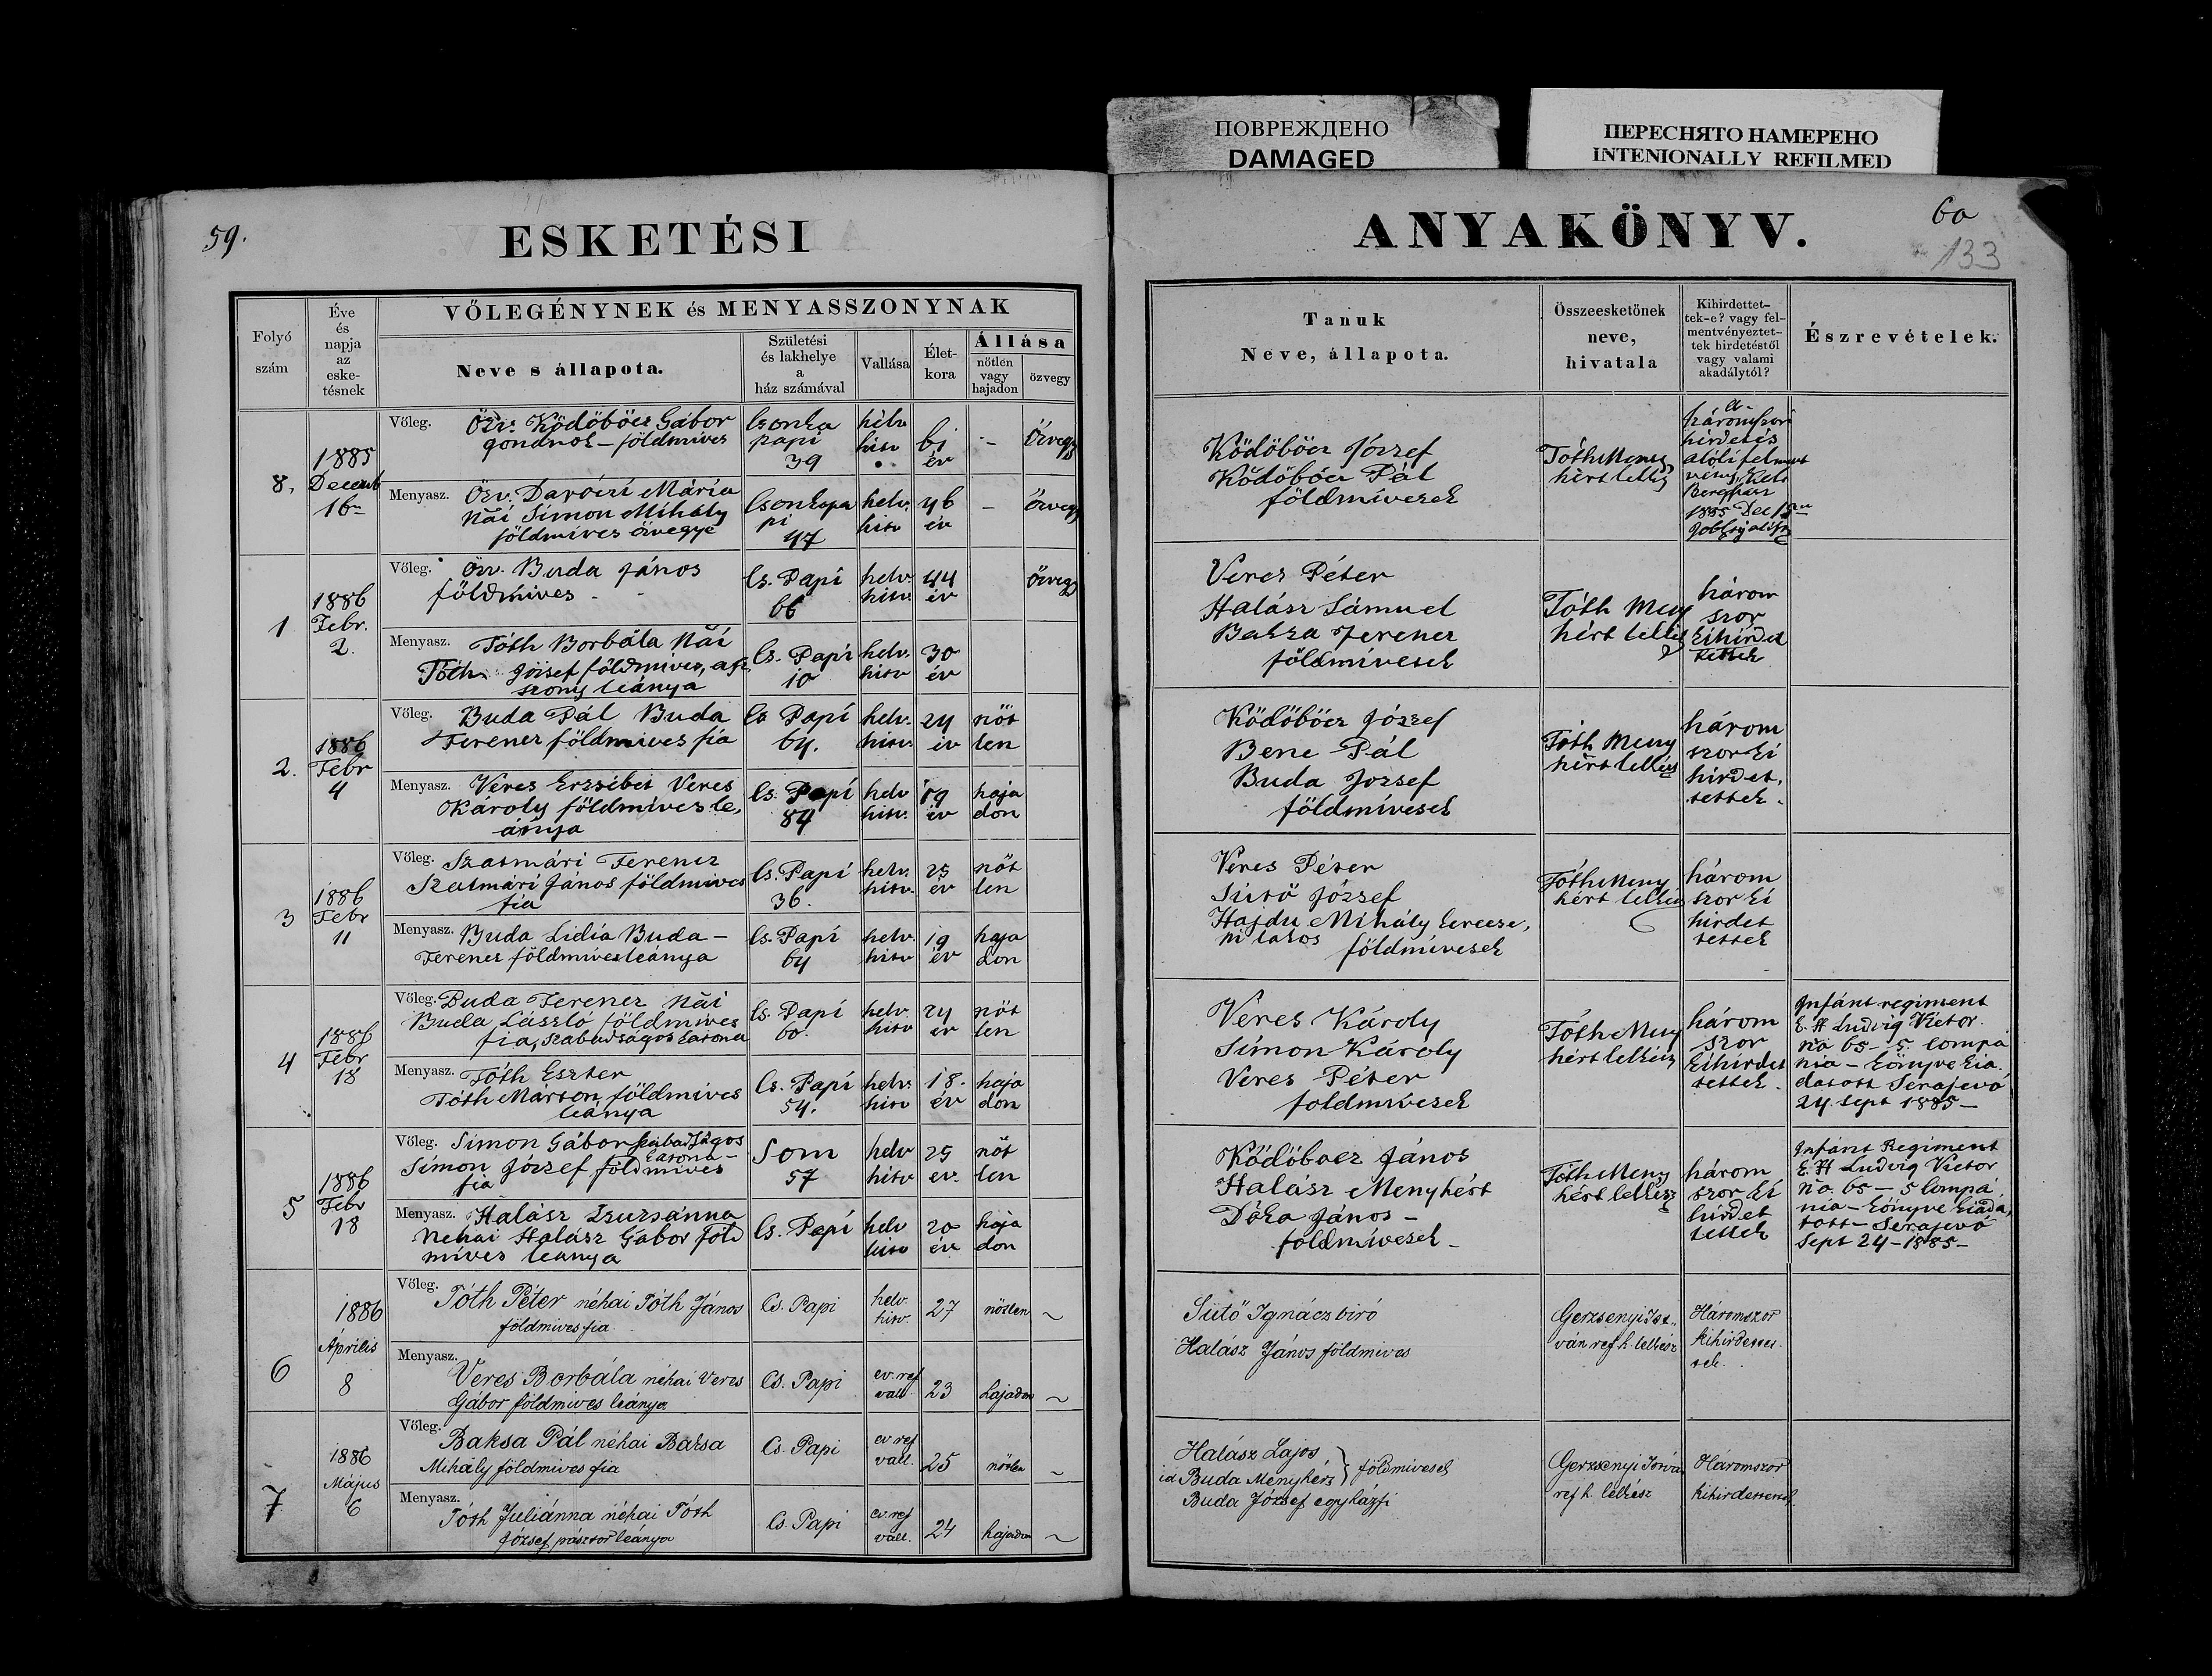 ПОВРЕЖДЕНО
DAMAGED
ПЕРЕСНЯТО НАМЕРЕНО
INTENIONALLY REFILMED
59.
ESKETÉSI
Folyó szám
Éve és napja az eske- tésnek
VŐLEGÉNYNEK és MENYASSZONYNAK
Neve s állapota.
Születési és lakhelye a ház számával
Vallása
Élet- kora
Állása
nőtlen vagy hajadon
özvegy
8.
1885
Decemb
16n
Vőleg. Özv. Ködöböcz Gábor
gondnok – földmives
Csonka
papi
39
helv
hitv
61
év
–
Özvegy
Menyasz. Özv. Daróczi Mária
Nái Simon Mihály
földmives özvegye
Csonkapa
pi
47
helv.
hitv
46
év
–
özvegy
1
1886
Febr.
2.
Vőleg. özv. Buda János
földmives
Cs. Papi
66
helv.
hitv.
44
év
özvegy
Menyasz. Tóth Borbála Nái
Tóth József földmives, asz
szony leánya
Cs. Papi
10
helv.
hitv
30
év
2.
1886
Febr
4
Vőleg. Buda Pál Buda
Ferencz földmives fia
Cs Papi
64.
helv.
hitv.
24
év
nőt
len
Menyasz. Veres Erzsébet Veres
Károly földmives le,
ánya
Cs. Papi
84
helv
hitv.
19
év
haja
don
3
1886
Febr
11
Vőleg. Szatmári Ferencz
Szatmári János földmives
fia
Cs. Papi
36.
helv.
hitv.
25
év
nőt
len
Menyasz. Buda Lidia Buda –
Ferencz földmives leánya
Cs. Papi
64
helv.
hitv
19
év
haja
don
4
1886
Febr
18
Vőleg. Buda Ferencz Nái
Buda László földmives
fia, szabadságos katona
Cs. Papi
60.
helv.
hitv
24
év
nőt
len
Menyasz. Tóth Eszter
Tóth Márton földmives
leánya
Cs. Papi
54.
helv.
hitv
18.
év
haja
don
5
1886
Febr
18
Vőleg. Simon Gábor szabadságos
katona –
Simon József földmives
fia
Som
57
helv
hitv
25
év.
nőt
len
Menyasz. Halász Zsuzsánna
Nehai Halász Gábor föld
mives leanya
Cs. Papi
helv
hitv
20
év
haja
don
6
1886
Április
8
Vőleg. Tóth Péter néhai Tóth János
földmives fia.
Cs. Papi
helv.
hitv.
27
nőtlen
~
Menyasz.
Veres Borbála néhai Veres
Gábor földmives leánya
Cs. Papi
ev. ref
vall.
23
hajadon
~
7
1886
Május
6
Vőleg. Baksa Pál néhai Baksa
Mihály földmives fia
Cs. Papi
ev ref
vall.
25
nőtlen
~
Menyasz.
Tóth Juliánna néhai Tóth
József pásztor leánya
Cs. Papi
ev. ref
vall.
24
hajadon
~
ANYAKÖNYV.
60
133
Tanuk
Neve, állapota.
Összeesketőnek neve, hivatala
Kihirdettet- tek-e? vagy fel- mentvényeztet- tek hirdetéstől vagy valami akadálytól?
Észrevételek.
Ködöböcz József
Ködöböcz Pál
földmívesek
Tóth Meny
hért lelkész
a
háromszori
hirdetés
alóli felment
vény kelt
Beregszász
1885 Dec 15én
Veres Péter
Halász Sámuel
Baksa Ferencz
földmívesek
Tóth Meny
hért lelkész
három
szor
kihirdet
tettek
Ködöböcz József
Bene Pál
Buda Jozsef
földmívesek
Tóth Meny
hért lelkész
három
szor ki
hirdet,
tettek.
Veres Péter
Sütő József
Hajdu Mihály kerecse,
ni lakos földmívesek
Tóth Meny
hért lelkész
három
szor ki
hirdet
tettek
Veres Károly
Simon Károly
Veres Péter
földmívesek
Tóth Meny
hért lelkész
három
szor
kihirdet
tettek.
Infánt regiment
E. H Ludvig Victor.
no 65 – 5. compá
nia – könyve kia.
datott Serajevó
24. sept 1885 –
Ködöböcz János
Halász Menyhért
Dóka János –
földmívesek –
Tóth Meny
hért lelkész
három
szor ki
hirdet
tettek
Infánt Regiment
E. H Ludvig Victor
no. 65 – 5 compá
nia – könyve kiada,
tott – Serajevó
Sept 24 – 1885 –
Sütő Ignácz biró
Halász János földmives
Gerzsenyi Ist.,
ván ref. h. lelkész
Háromszor
kihirdettet.
tek.
Halász Lajos
id Buda Menyhérz } földmivesek
Buda József egyházfi
Gerzsenyi István
ref h. lelkész
Háromszor
kihirdettettek.